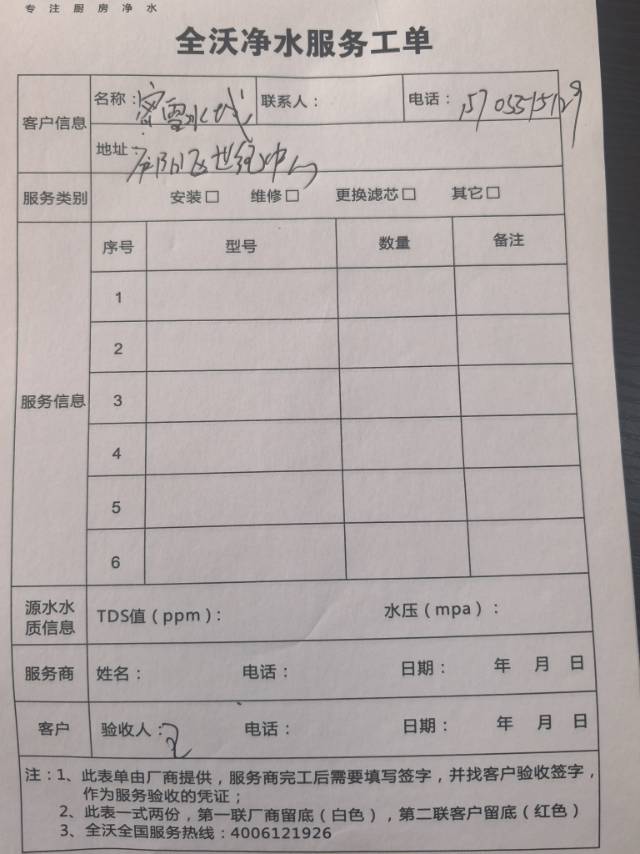 专注厨房净水
全沃净水服务工单
客户信息
名称：蜜雪冰城 联系人： 电话：
地址：
服务类别 安装□ 维修□ 更换滤芯□ 其它□
服务信息
序号 型号 数量 备注
1
2
3
4
5
6
源水水质信息 TDS值（ppm）： 水压（mpa）：
服务商 姓名： 电话： 日期： 年 月 日
客户 验收人： 电话： 日期： 年 月 日
注：1、此表单由厂商提供，服务商完工后需要填写签字，并找客户验收签字，
作为服务验收的凭证；
2、此表一式两份，第一联厂商留底（白色），第二联客户留底（红色）
3、全沃全国服务热线：4006121926